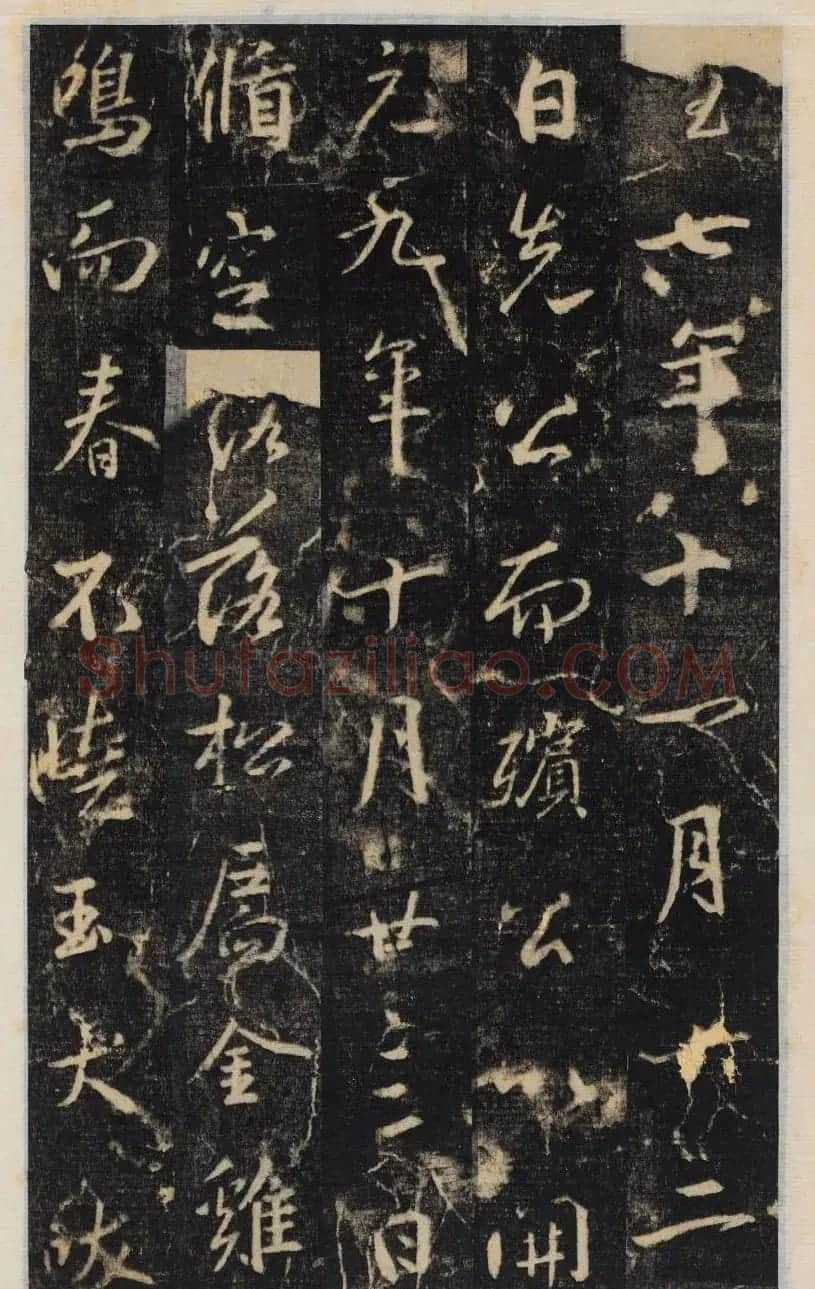 六年十一月廿二
日先公而殯公以開
元九年十月廿三日
脩空落松扃金雞
鳴而春不曉玉犬吠
Shufaziliao.COM